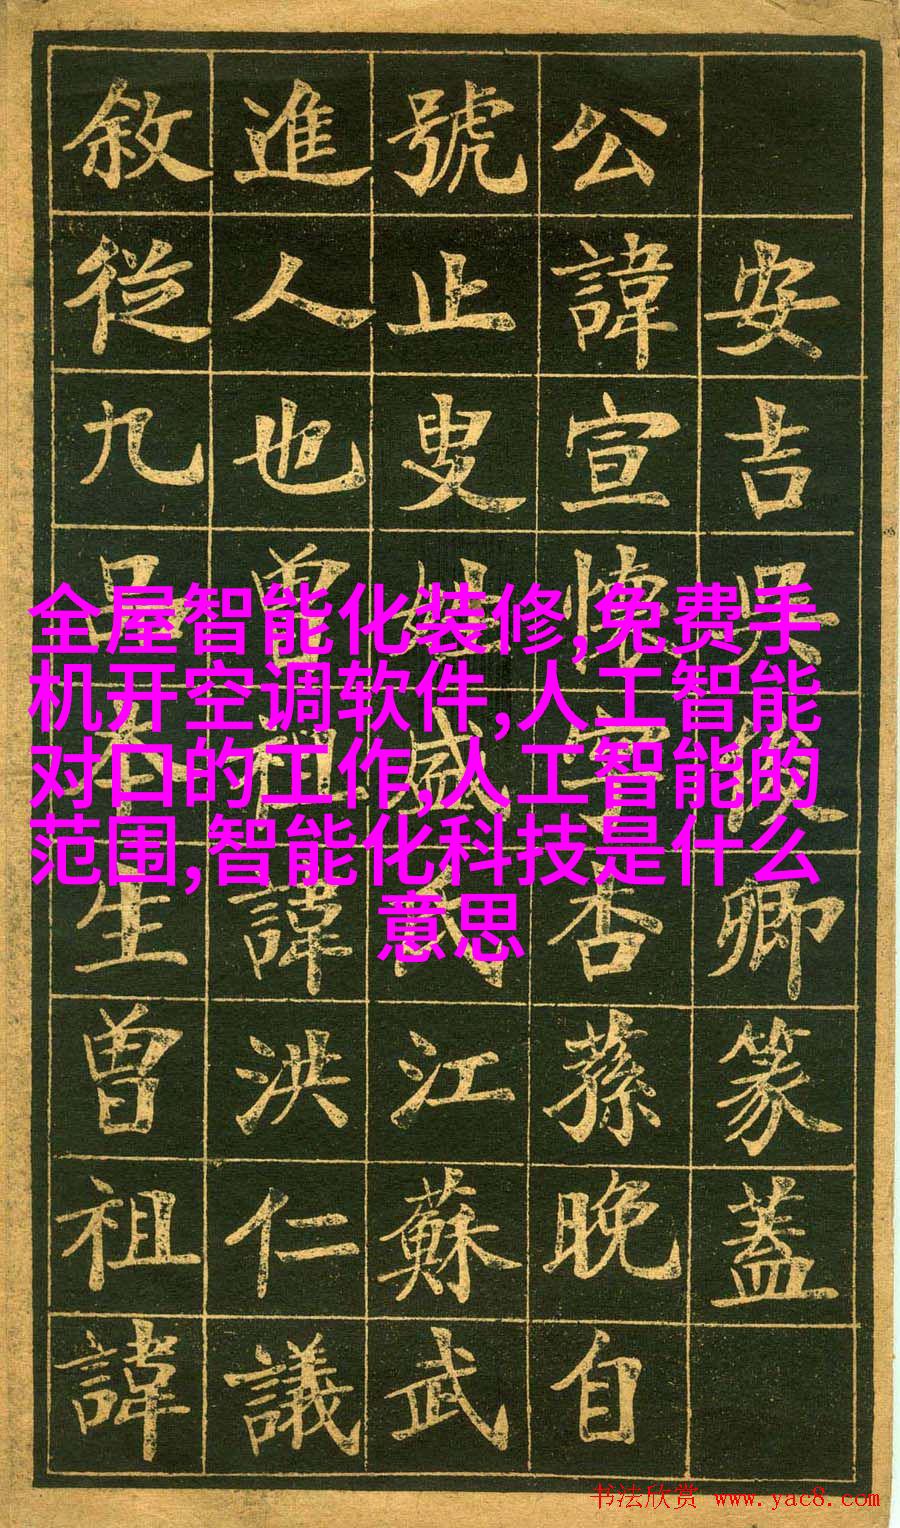 安吉吳俊卿篆蓋
公諱宣懷字杏蓀晚自
號止叟姓盛氏江蘇武
進人也曾門諱洪仁議
敘從九品本生曾祖諱
全屋智能化装修,免费手
机开空调软件,人工智能
对口的工作,人工智能的
范围,智能化科技是什么
意思
书法欣赏 www.yac8.com